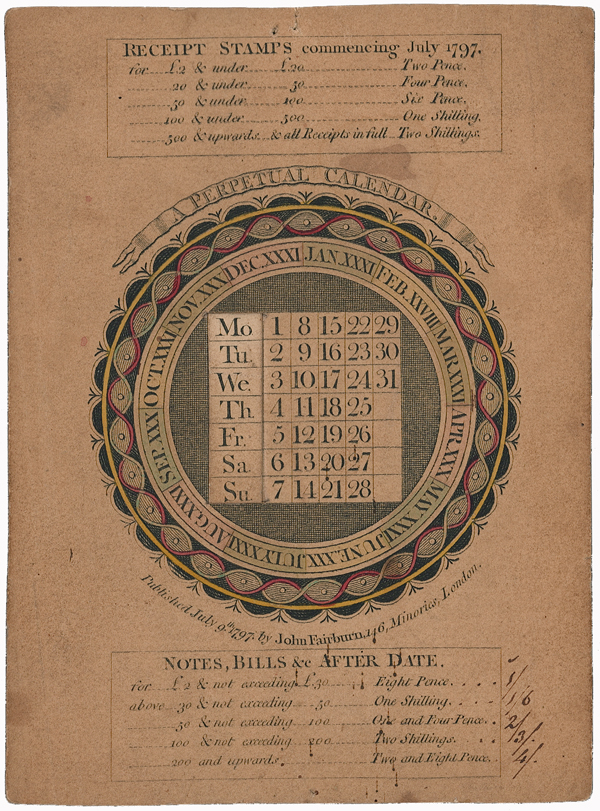 RECEIPT STAMPS commencing July 1797.
for £2 & under £20 Two Pence.
20 & under 50 Four Pence.
50 & under 100 Six Pence.
100 & under 500 One Shilling.
500 & upwards & all Receipts in full Two Shillings.
A PERPETUAL CALENDAR.
JAN. XXXI
FEB. XXVIII
MAR. XXXI
APR. XXX
MAY XXXI
JUNE. XXX
JULY XXXI
AUG. XXXI
SEP. XXX
OCT. XXXI
NOV. XXX
DEC. XXXI
Mo 1 8 15 22 29
Tu. 2 9 16 23 30
We. 3 10 17 24 31
Th. 4 11 18 25
Fr. 5 12 19 26
Sa. 6 13 20 27
Su. 7 14 21 28
Published July 9th 1797. by John Fairburn, 146, Minories, London.
NOTES, BILLS &c AFTER DATE.
for £2 & not exceeding £30 Eight Pence. 1/
above 30 & not exceeding 50 One Shilling. 1/6
50 & not exceeding 100 One and Four Pence. 2/
100 & not exceeding 200 Two Shillings. 3/.
200 and upwards Two and Eight Pence. 4/.